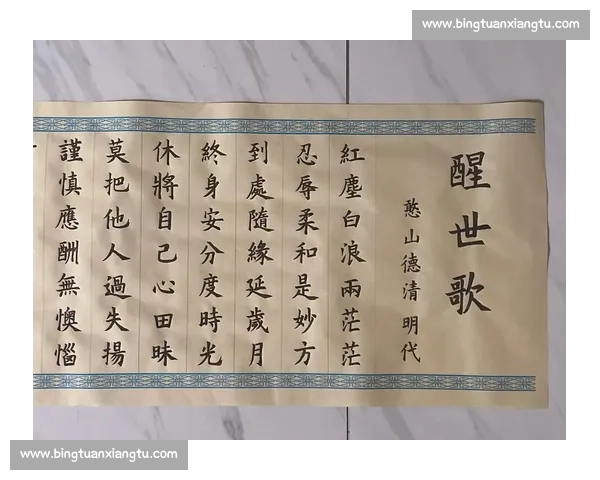 www.bingtuanxiangtu.com
醒世歌
憨山德清 明代
紅塵白浪兩茫茫
忍辱柔和是妙方
到處隨緣延歲月
終身安分度時光
休將自己心田昧
莫把他人過失揚
謹慎應酬無懊惱
www.bingtuanxiangtu.com